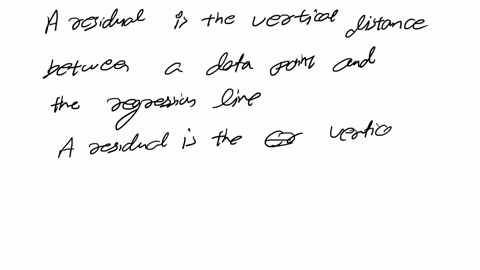 A residual is the vertical distance
between a data point and
the regression line
A residual is the vertic